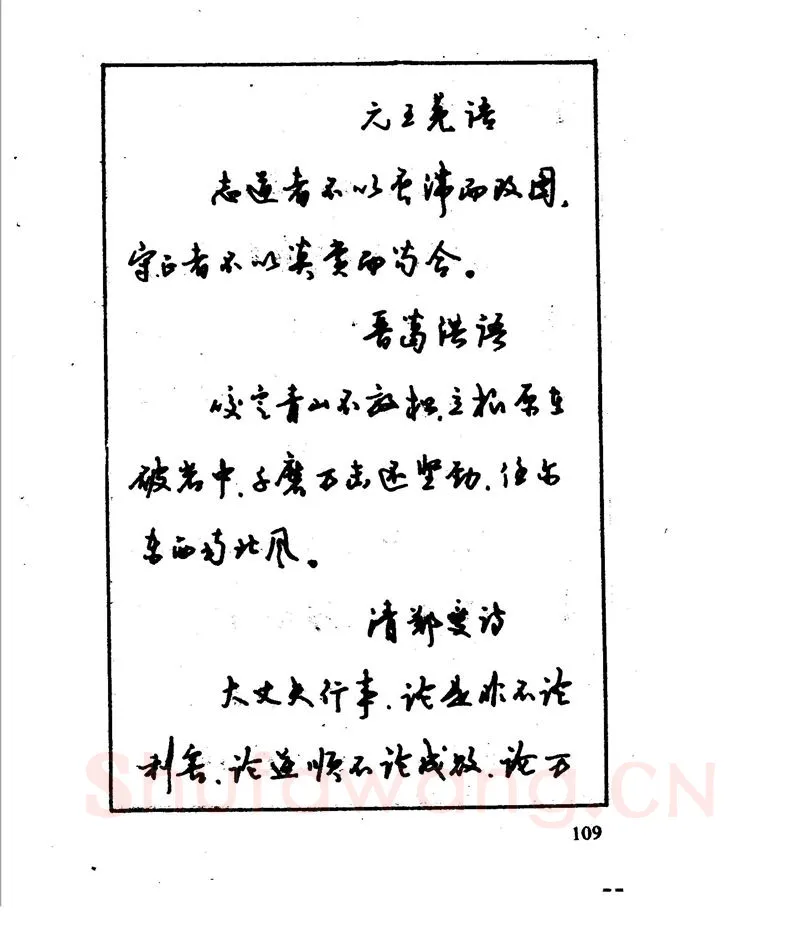 元王冕语
志道者不以否滞而改图,
守正者不以莫赏而苟合。
晋葛洪语
咬定青山不放松,立根原在
破岩中,千磨万击还坚劲,任尔
东西南北风。
清郑燮诗
大丈夫行事,论是非不论
利害,论逆顺不论成败,论万
Shufawang.CN
109